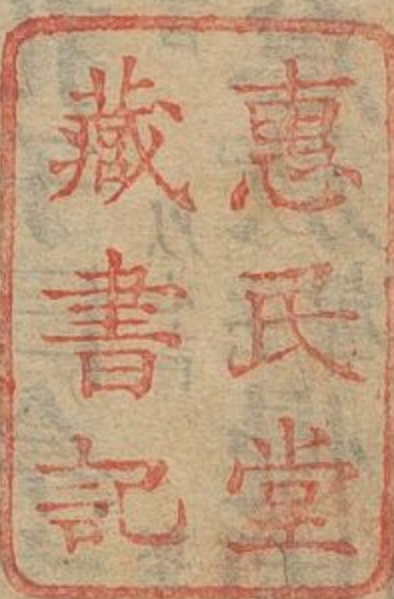 惠民堂
藏書記